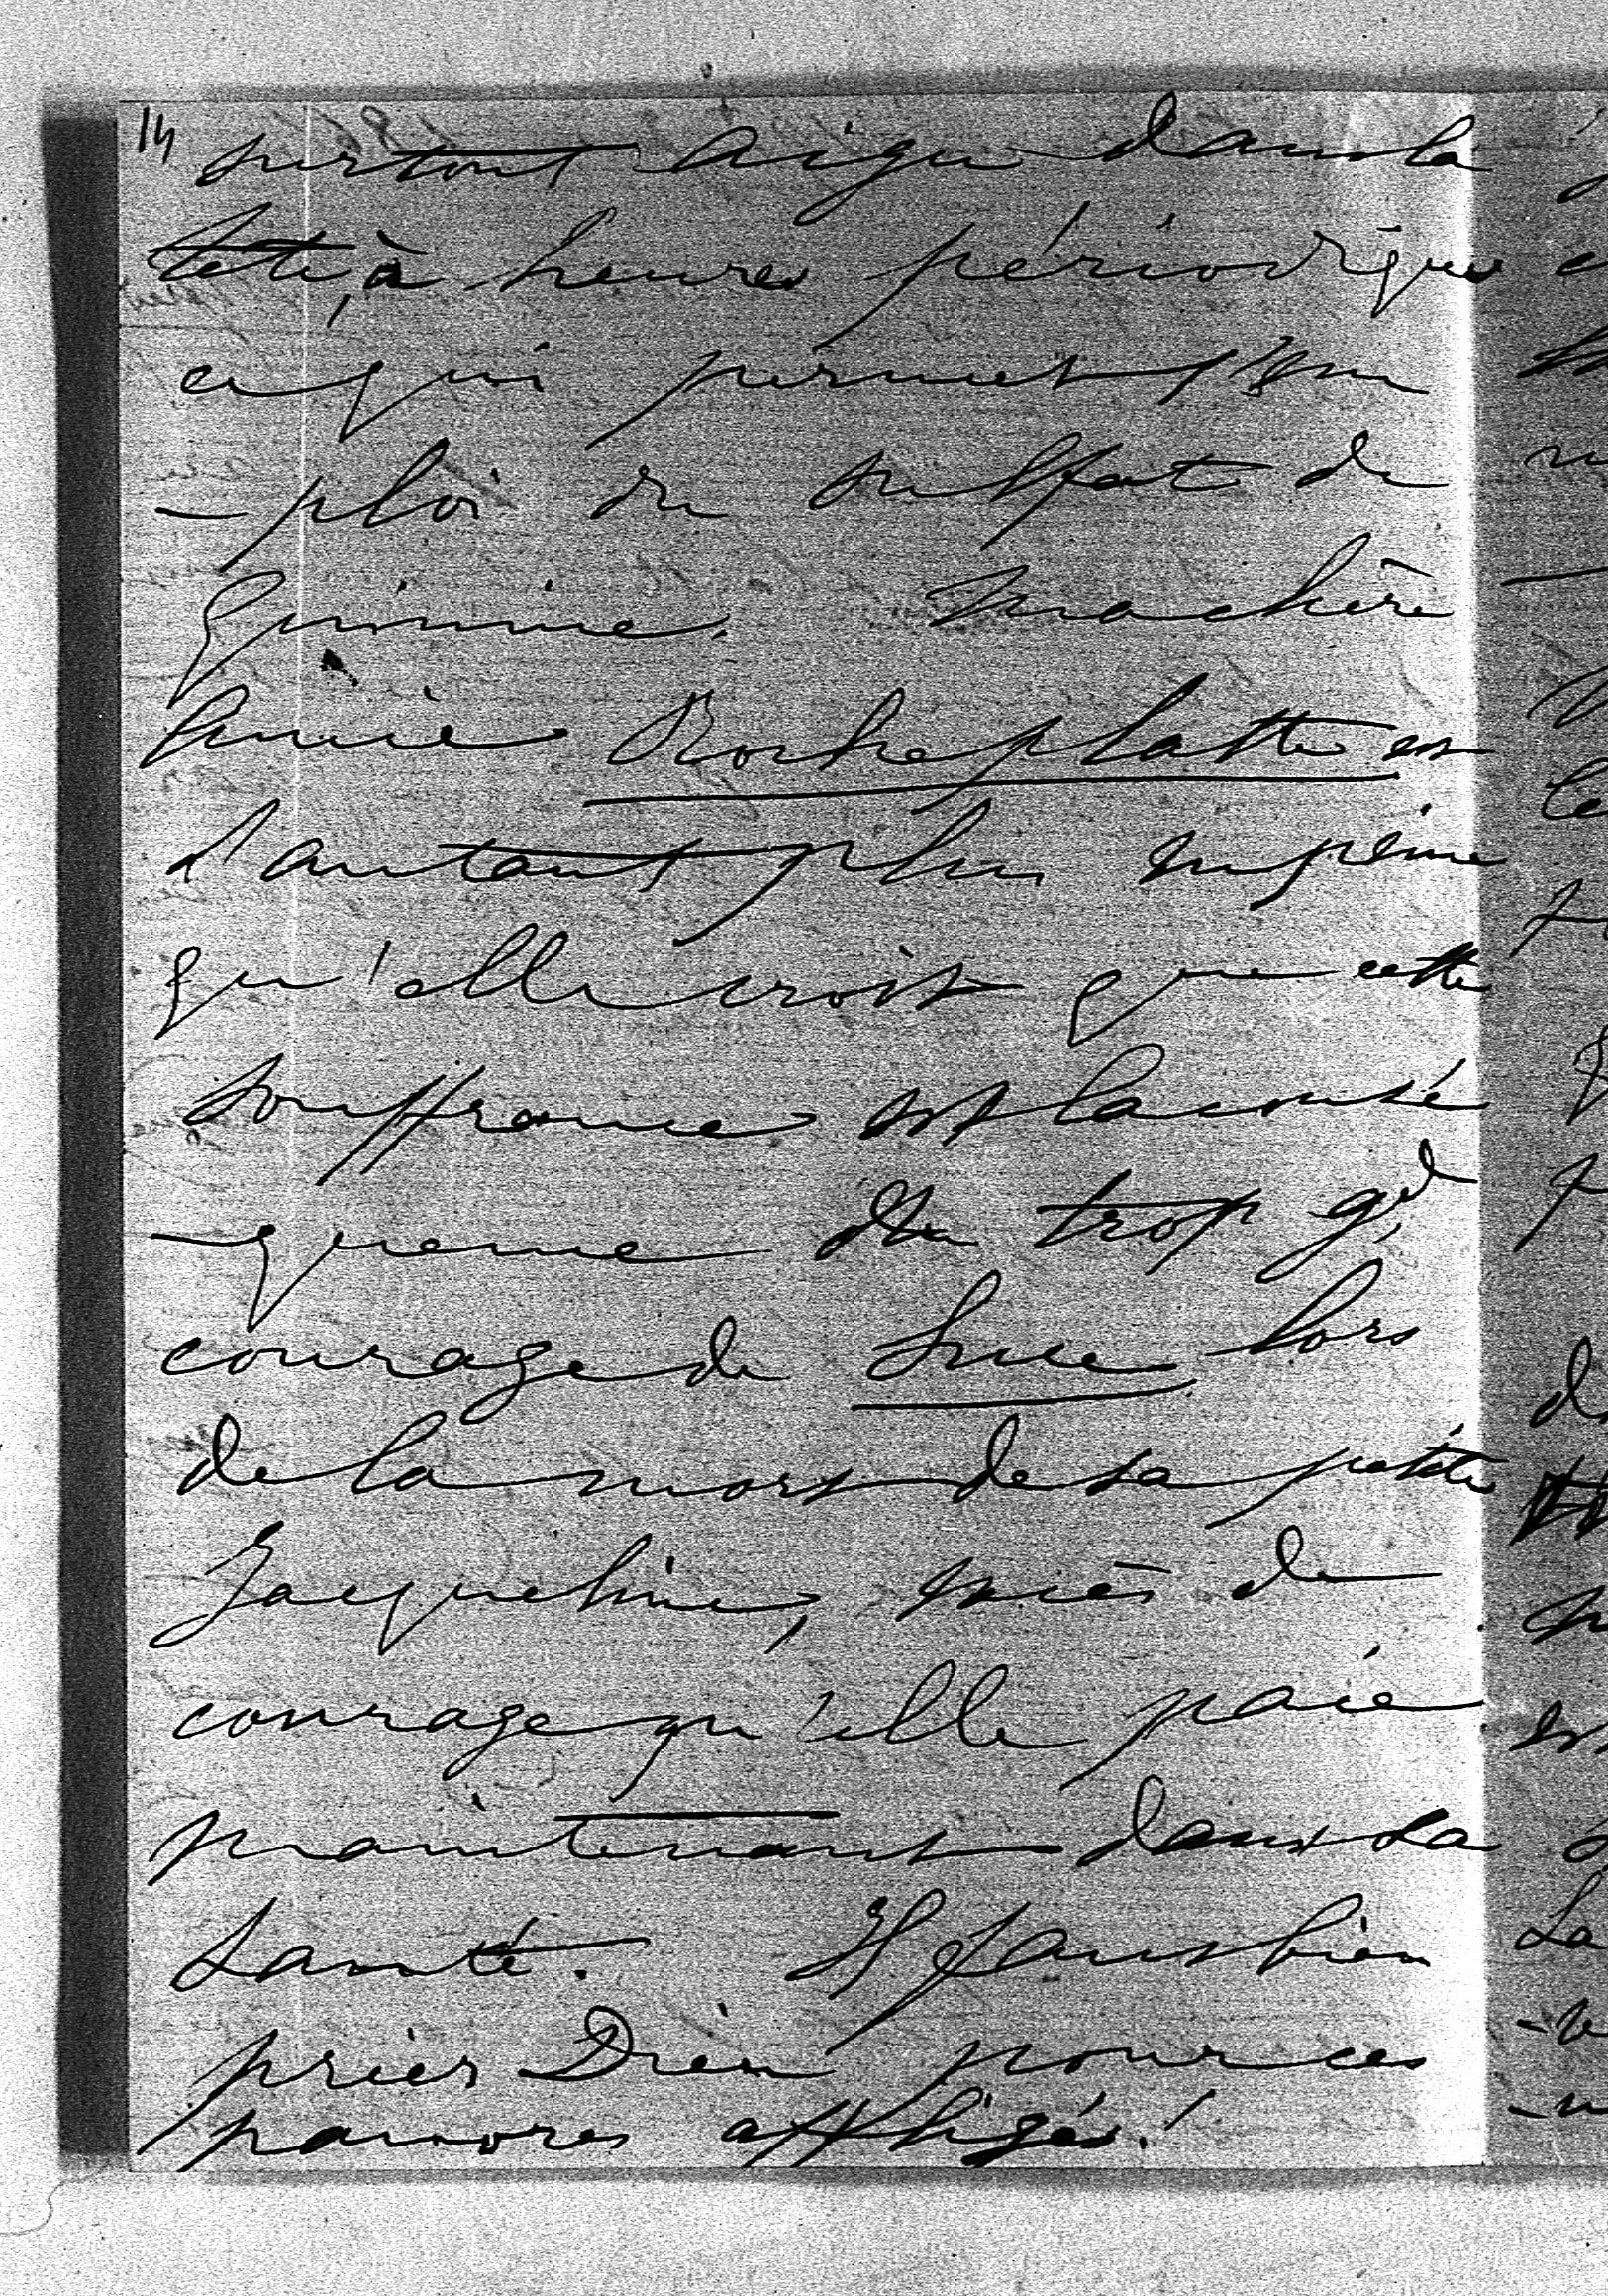 14
surtout aigu dans la
tête, à heures périodiques
ce qui permet l'em
-ploi du sulfat de
Quinine. Ma chère
Rocheplatte est
d'autant plus en peine
qu'elle croit que cette
souffrance est la consé
-quence du trop gd
courage de Luce lors
de la mort de sa petite
Jacqueline, excès de
courage qu'elle paie
maintenant dans sa
santé. Il faut bien
prier Dieu pour ces
pauvres affligés !